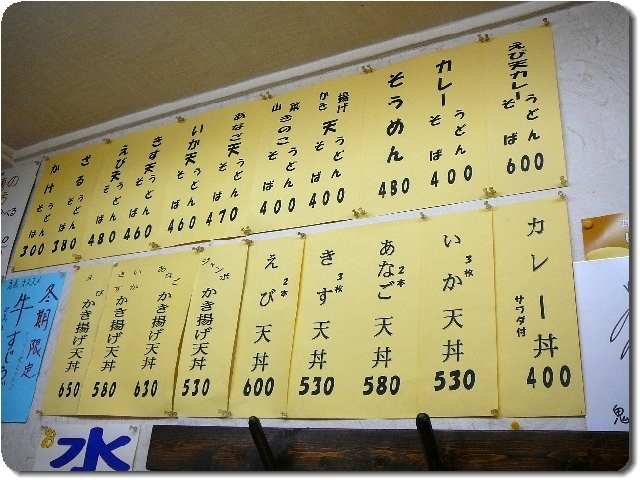 えび天カレーうどんそば 600
カレーうどんそば 400
そうめん 480
かき揚げ天うどんそば 400
山菜きのこうどんそば 400
あなご天うどんそば 470
いか天うどんそば 460
きす天うどんそば 460
えび天うどんそば 480
ざるうどんそば 380
かけうどんそば 300
カレー丼 サラダ付 400
いか天丼 3枚 530
あなご天丼 2本 580
きす天丼 3枚 530
えび天丼 2本 600
ジャンボかき揚げ天丼 530
あなごかき揚げ天丼 630
いかきすかき揚げ天丼 580
えびかき揚げ天丼 650
冬期限定
牛すじ
水
鬼